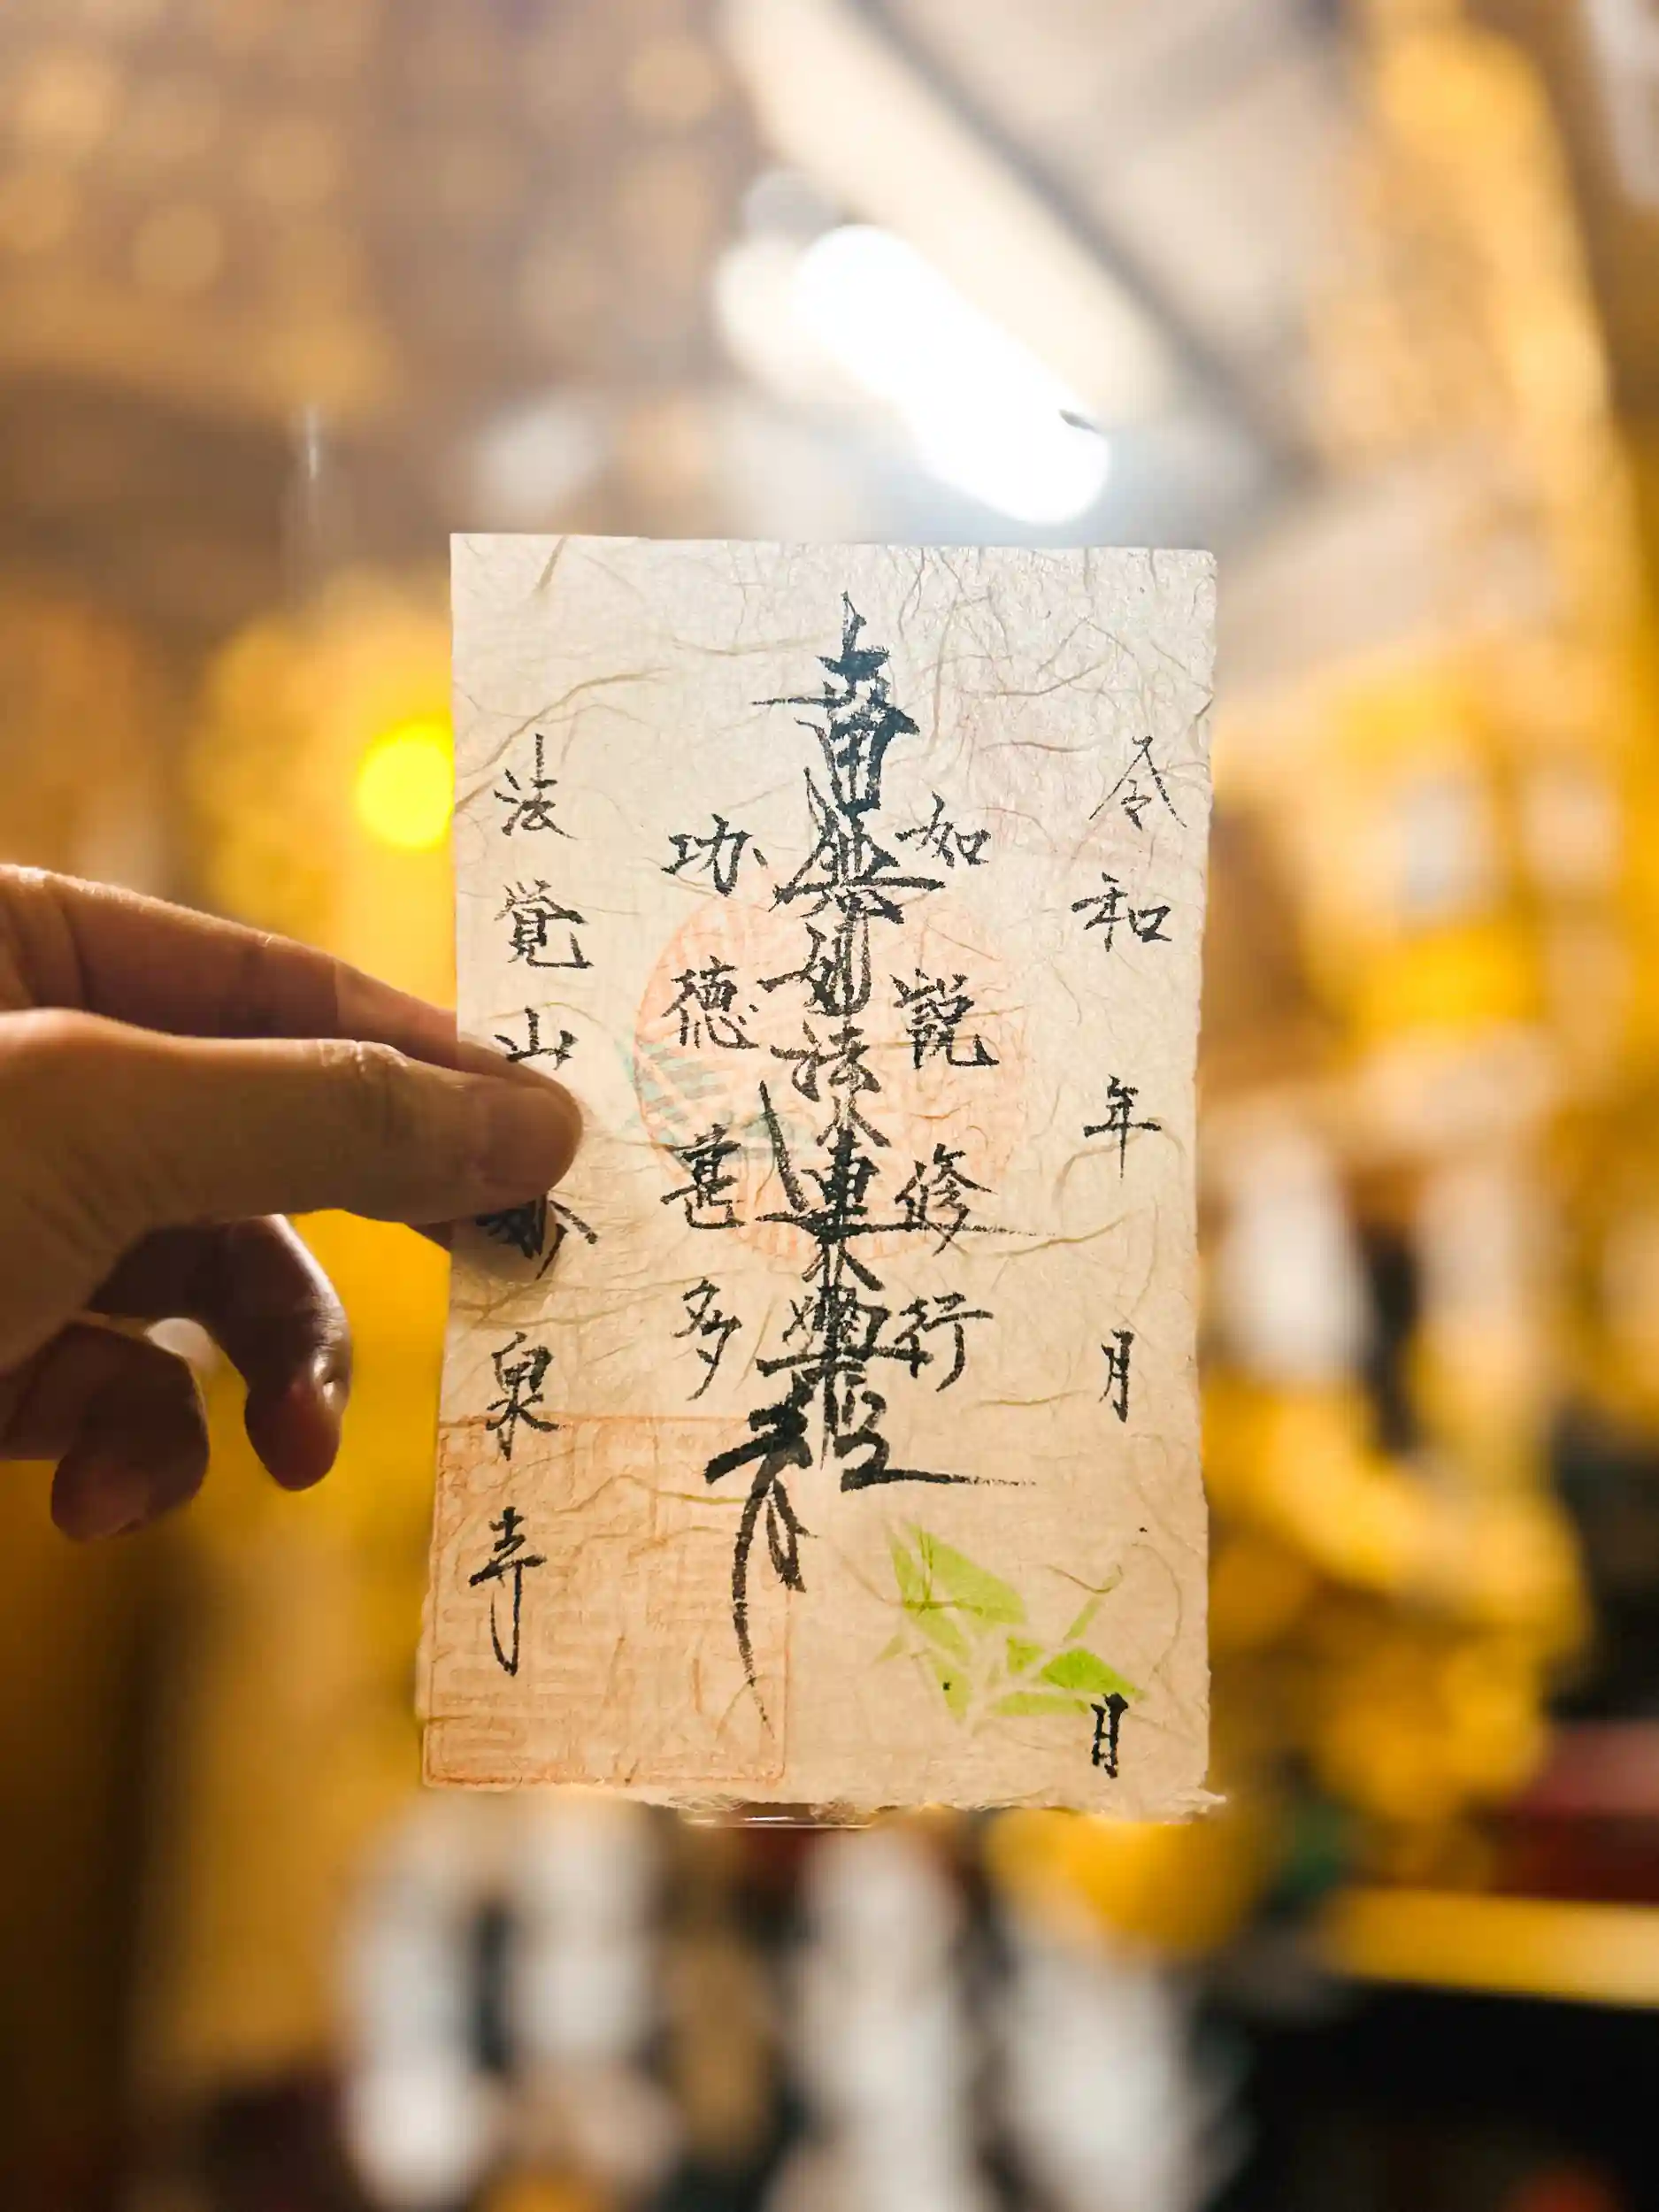 令和 年 月 日
如説修行
南無妙法蓮華經
功徳甚多
法覚山 妙泉寺